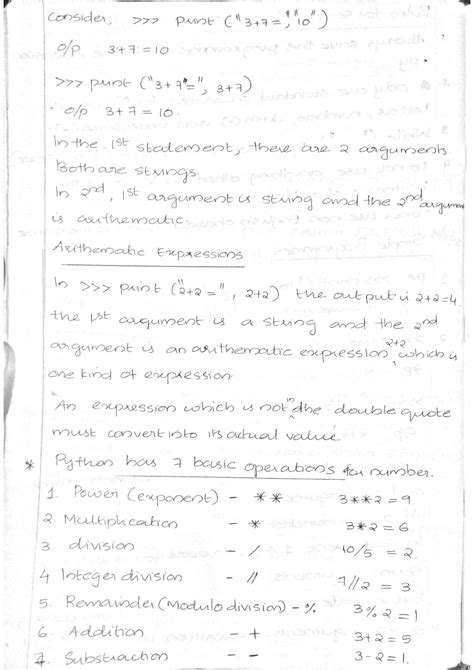 Consider, >>> print ("3+7=","10")
o/p 3+7=10
>>> print ("3+7=", 3+7)
o/p 3+7=10.
In the 1st statement, there are 2 arguments.
Both are strings.
In 2nd, 1st argument is string and the 2nd argument
is arithematic.
Arithematic Expressions
In >>> print ("2+2=", 2+2) the output is 2+2=4
the 1st argument is a string and the 2nd
argument is an arithematic expression 2+2, which is
one kind of expression
An expression which is not in the double quote
must convert into its actual value
* Python has 7 basic operations for number.
1. Power (exponent) - ** 3**2=9
2. Multiplication - * 3*2=6
3. division - / 10/5 = 2.
4 Integer division - // 7//2 = 3.
5. Remainder (Modulo division) - % 3%2=1
6. Addition - + 3+2=5
7. Substraction - - 3-2=1.